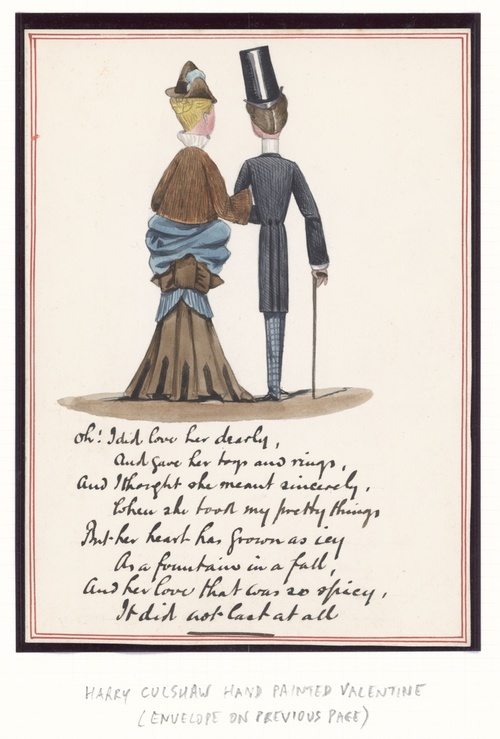 Oh! I did love her dearly,
And gave her toys and rings,
And I thought she meant sincerely,
When she took my pretty things
But her heart has grown as icy
As a fountain in a fall,
And her love that was so spicy,
It did not last at all
HARRY CULSHAW HAND PAINTED VALENTINE
(ENVELOPE ON PREVIOUS PAGE)